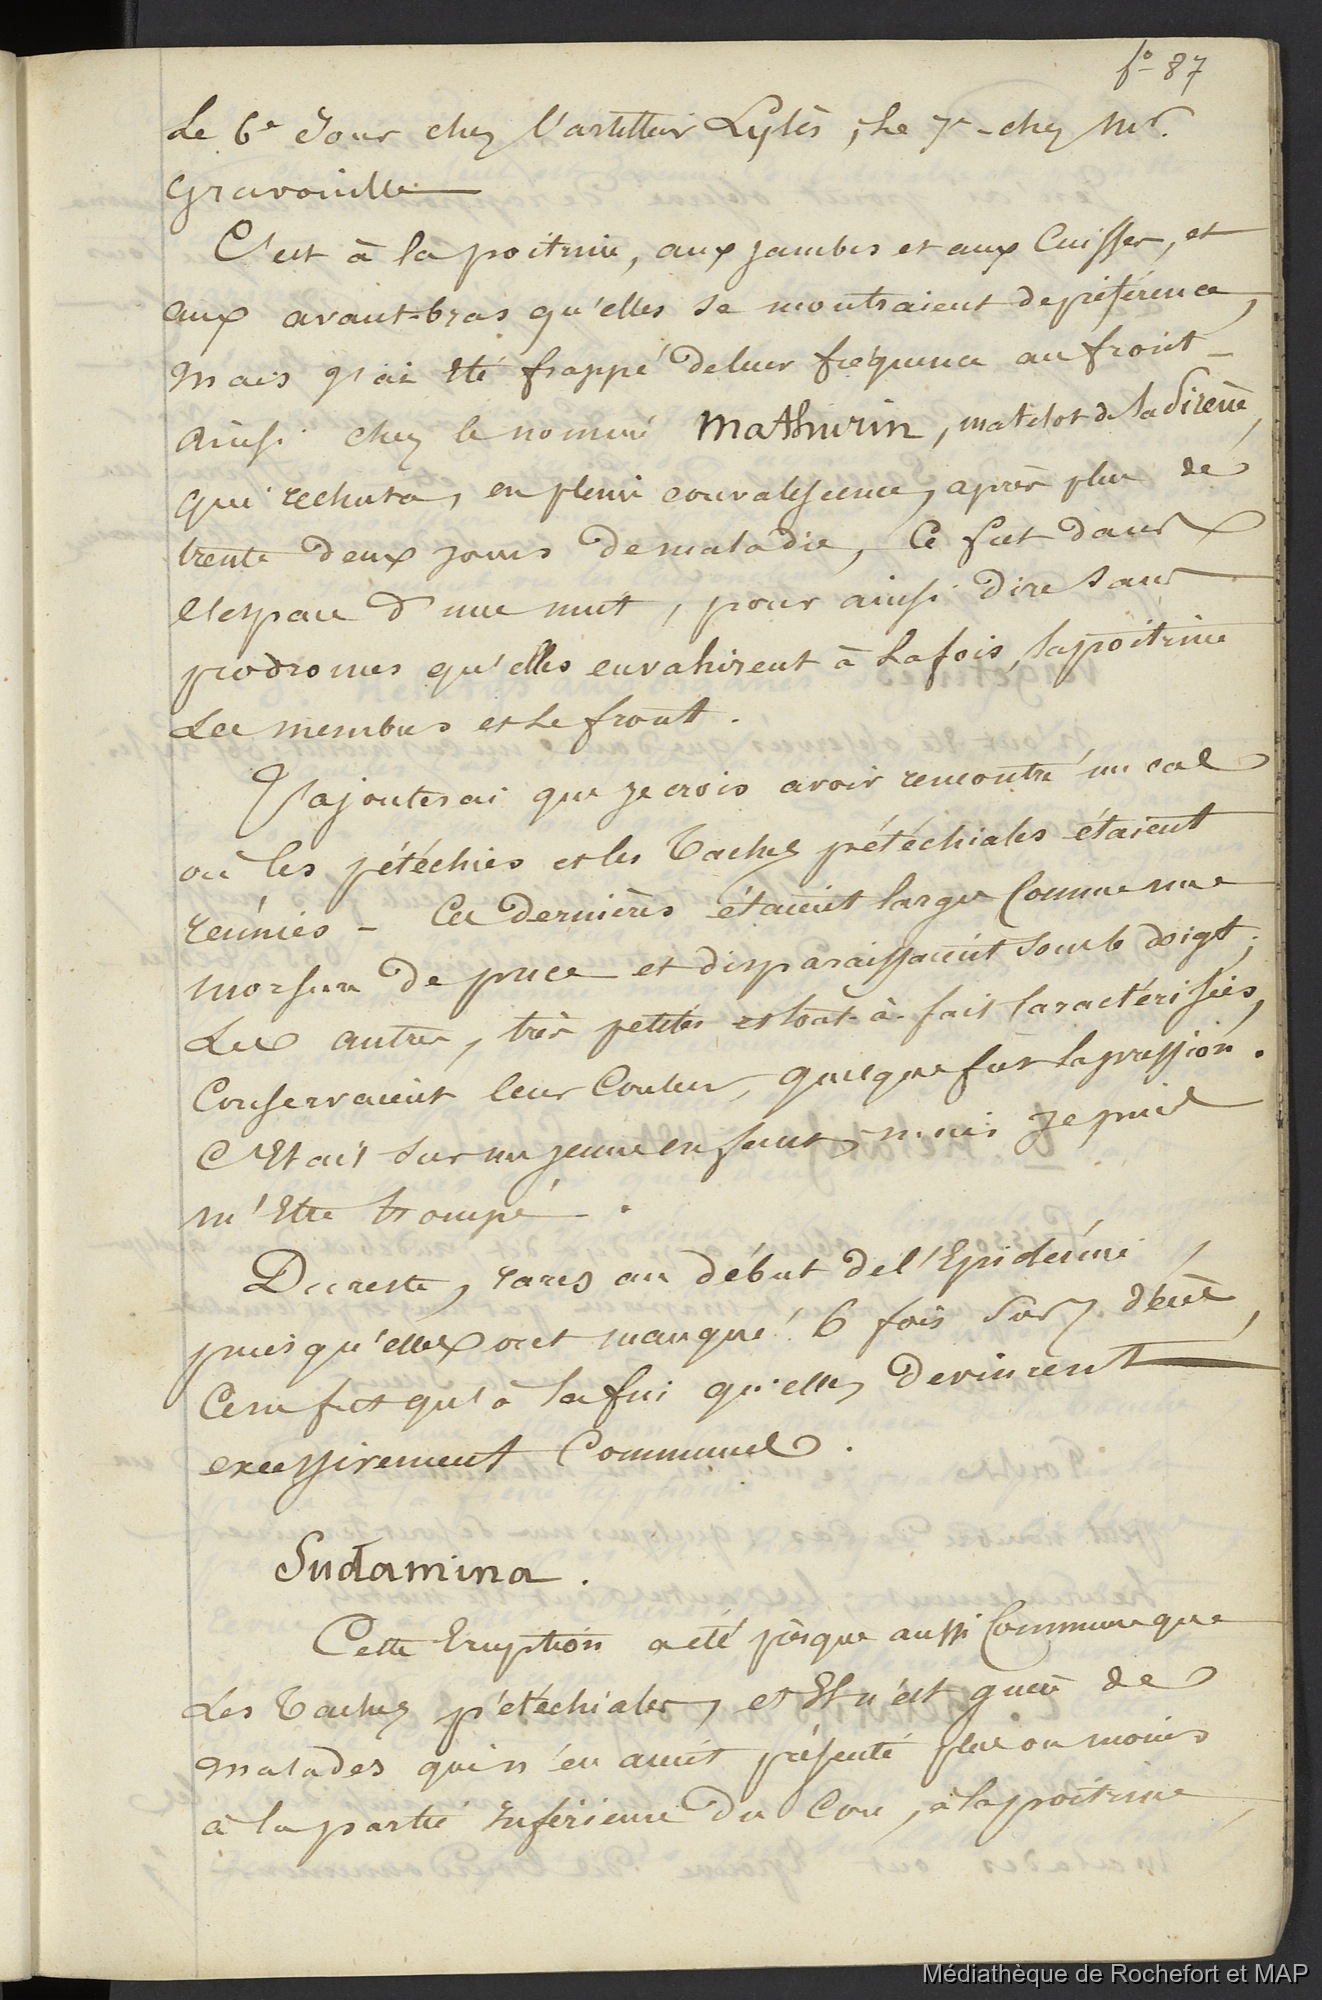 fº 87
Le 6e Jour chez l'artilleur Lylès, le 7e chez Mr.
Gravouille
C'est à la poitrine, aux jambes et aux Cuisses, et
aux avant-bras qu'elles se montraient de préférence,
Mais j'ai été frappé de leur fréquence au front
ainsi chez le nommé Mathurin, matelot de la Sirène,
qui rechuta, en pleine convalescence, après plus de
trente deux jours de maladie, Ce fut dans
l'espace d'une nuit, pour ainsi dire sans
prodromes qu'elles envahirent à la fois, la poitrine
Les membres et le front.
J'ajouterai que je crois avoir rencontré un cas
où les pétéchies et les Taches pétéchiales étaient
réunies - Ces dernières étaient larges Comme une
morsure de puce et disparaissaient sous le doigt;
Les autres, très petites et tout-à-fait caractérisées,
Conservaient leur Couleur, quelque fût la pression.
C'était sur un jeune enfant, mais je puis
m'être trompé.
Du reste, rares au début de l'Epidémie,
puisqu'elles ont manqué 6 fois sur 7 d'entre,
Ce ne fut qu'à la fin qu'elles devinrent
excessivement Communes.
Sudamina.
Cette Eruption a été presque aussi Commune que
Les Taches pétéchiales, et Il n'est guère de
malades qui n'en aient présenté plus ou moins
à la partie Inférieure du Cou, à la poitrine,
Médiathèque de Rochefort et MAP